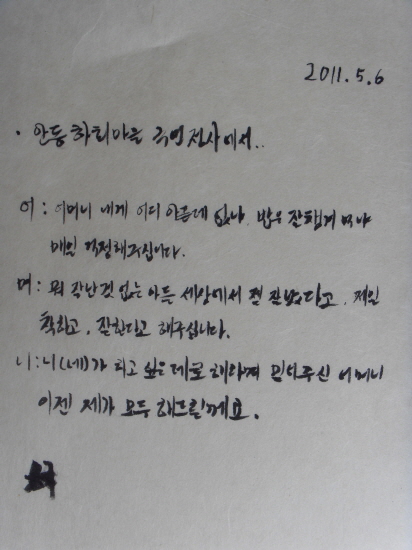 2011. 5. 6
· 안동 하회마을 국인전사에서..
어 : 어머니 내게 어디 아픈데 없나, 밥은 잘챙겨 먹나
매일 걱정해주십니다.
머 : 뭐 잘난것 없는 아들 세상에서 젤 잘났다고, 제일
착하고, 잘한다고 해주십니다.
니 : 니(네)가 하고 싶은데로 해야져 믿어주신 어머니
이젠 제가 모두 해드릴께요.